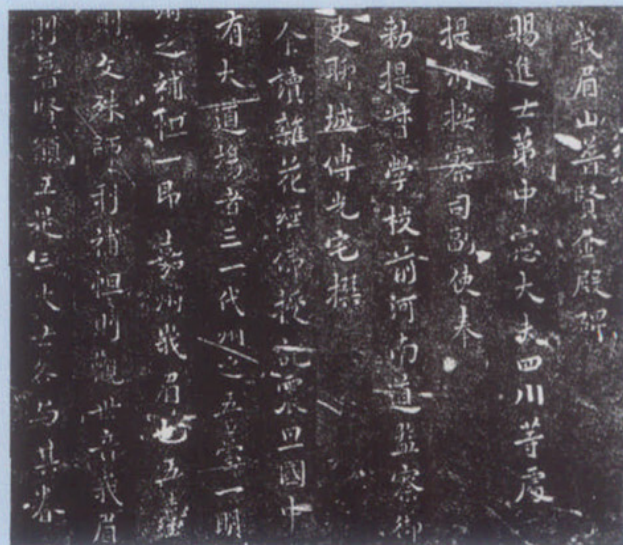 峩眉山普賢金殿碑
賜進士第中憲大夫四川等處
提刑按察司副使奉
勑提督學校前河南道監察御
史聊城傅光宅撰
余讀雜花經佛授記震旦國中
有大道場者三一代州之五臺一明
州之補怛一即嘉州峩眉也五臺
則文殊師利補怛則觀世音峩眉
則普賢願王是三大士各與其眷